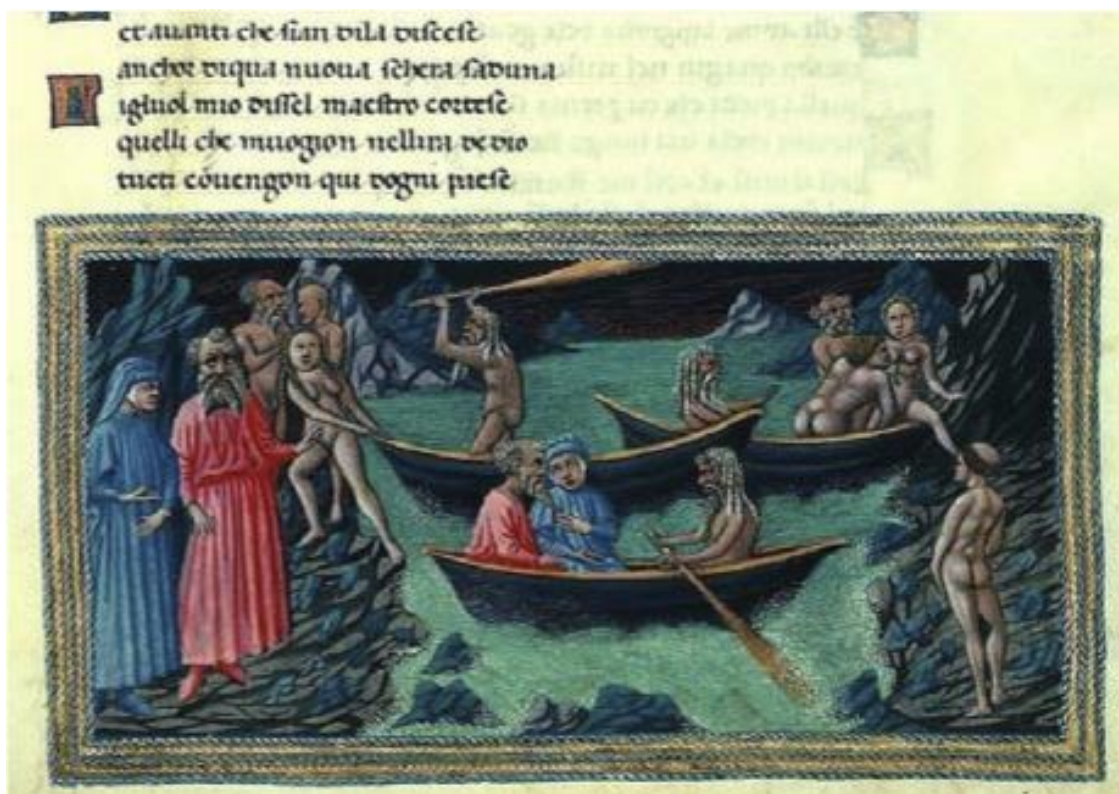 et auanti che sian dila discese
anchor diqua nuoua schera saduna
Figluol mio dissel maestro cortese
quelli che muogion nellira dedio
tucti cōuengon qui dogni paese